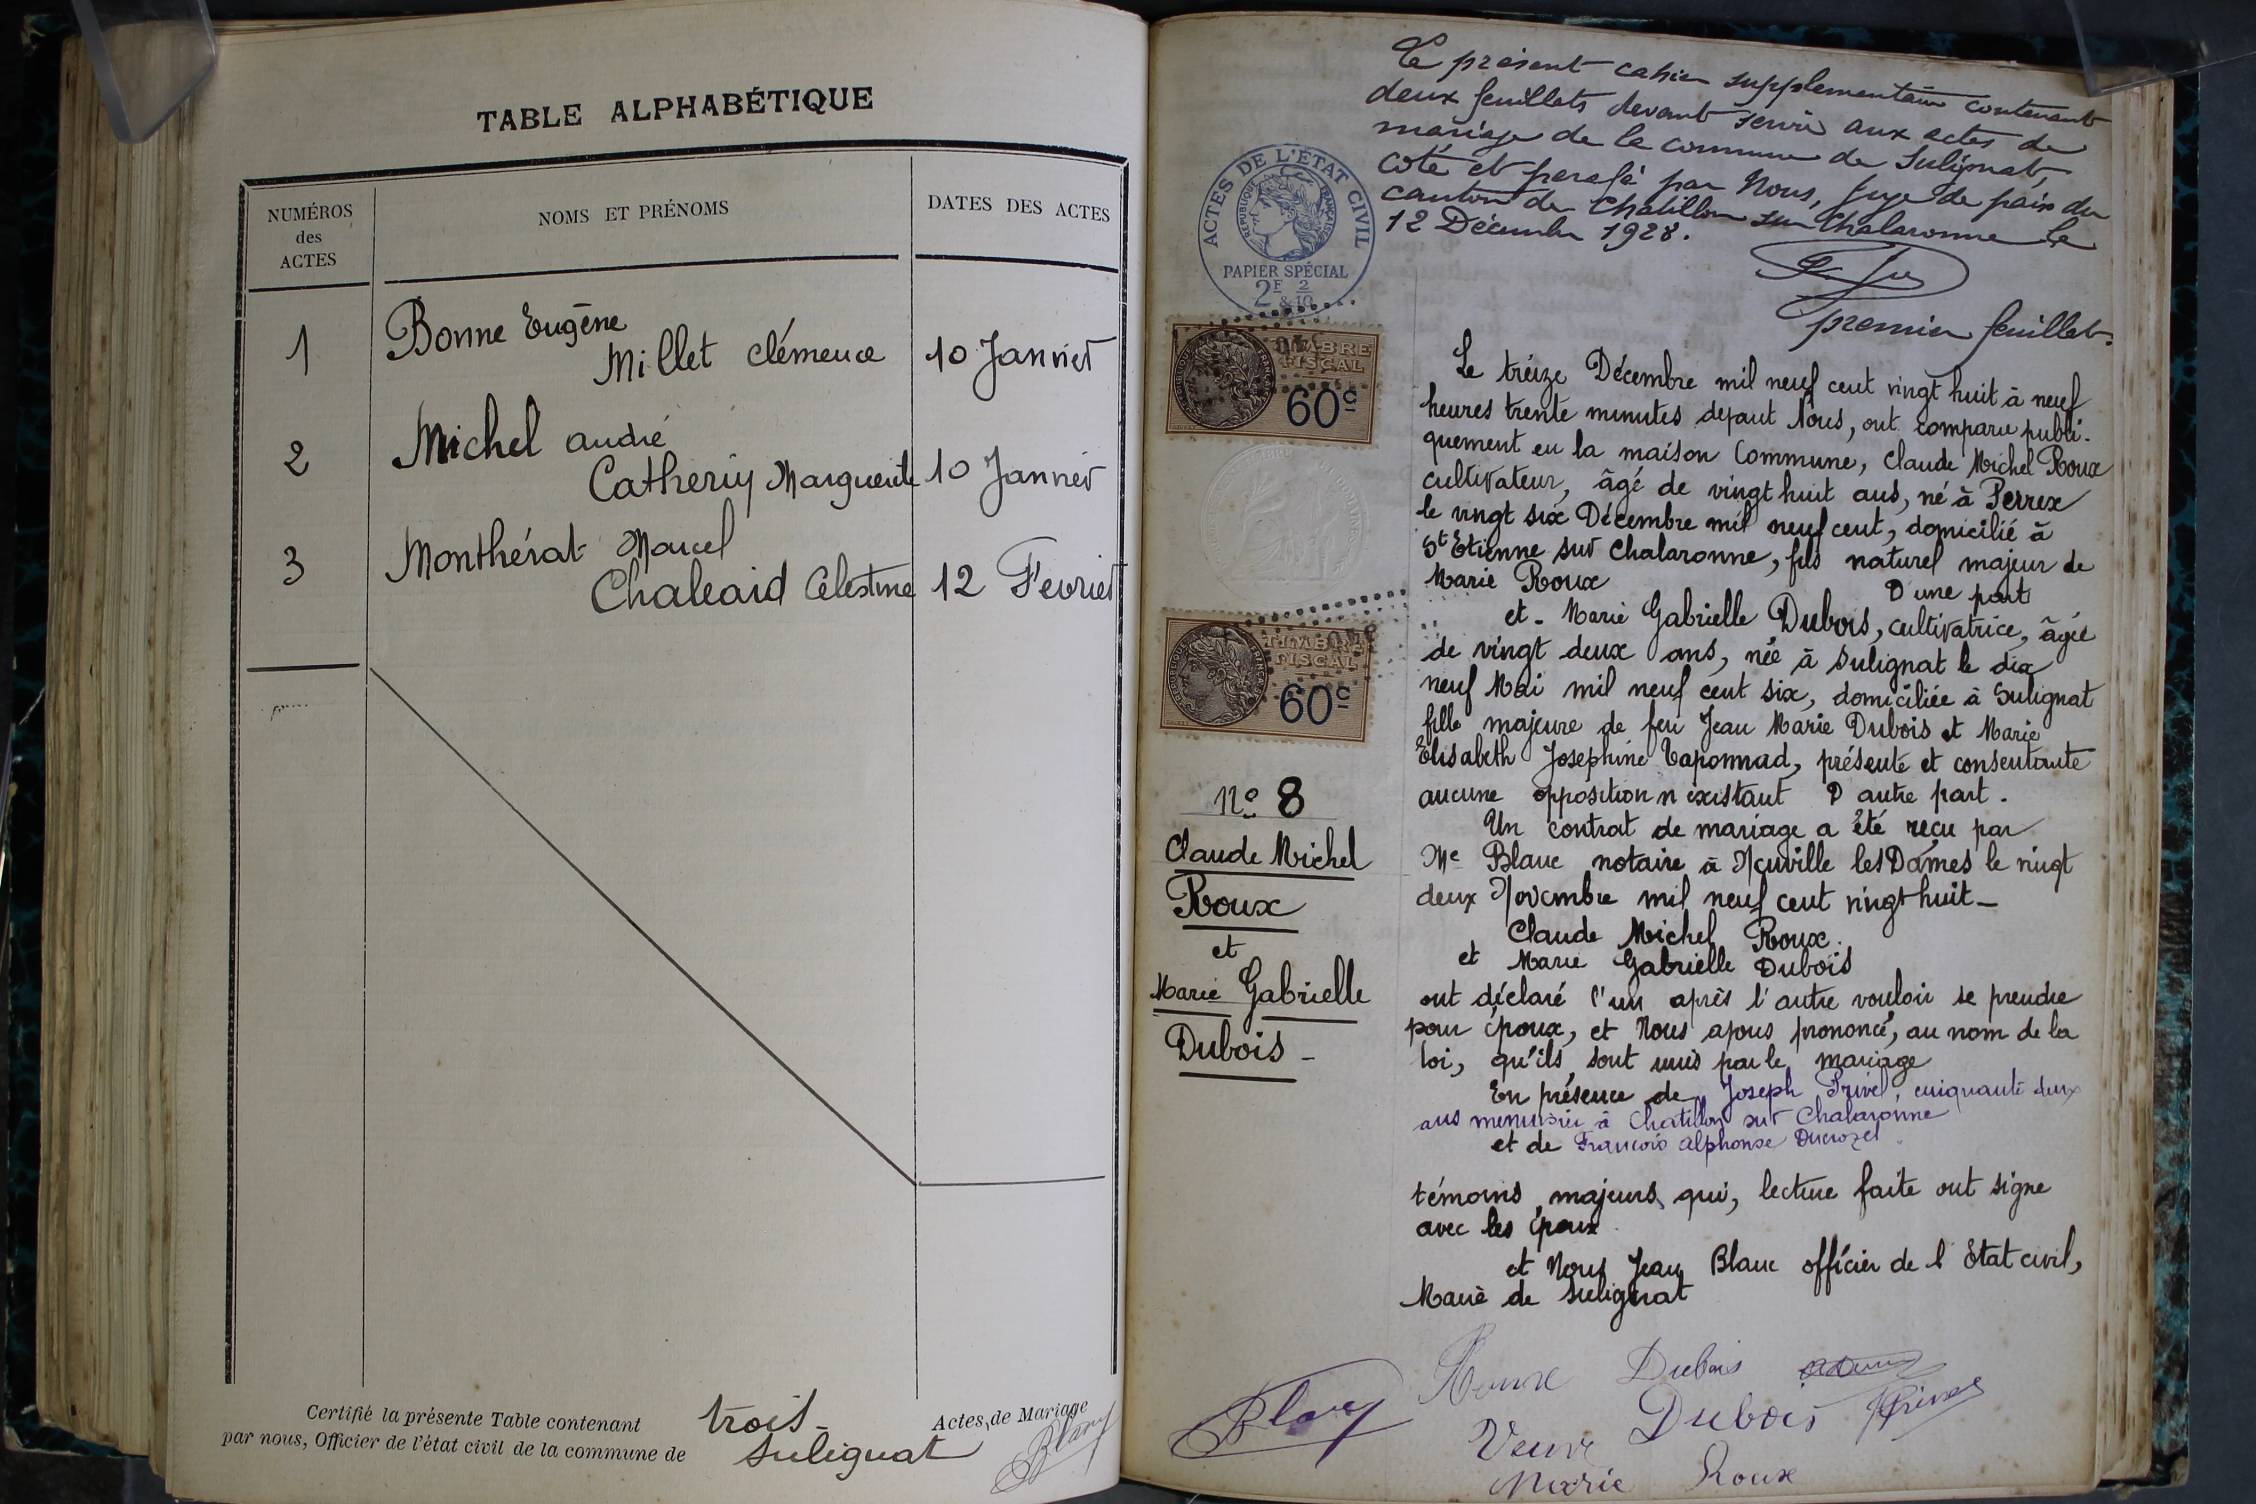 TABLE ALPHABÉTIQUE
NUMÉROS
des
ACTES
NOMS ET PRÉNOMS
DATES DES ACTES
1
Bonne Eugène
Millet Clémence
10 Janvier
2
Michel André
Catherin Marguerite
10 Janvier
3
Monthérat Marcel
Célestine
12 Fevrier
Certifié la présente Table contenant
trois
Actes de Mariage
par nous, Officier de l'état civil de la commune de
Sulignat
Blanc
Le présent cahier supplémentaire contenant
deux feuillets devant servir aux actes de
mariage de la commune de Sulignat,
coté et parafé par Nous, Juge de paix du
canton de Chatillon sur Chalaronne le
12 Décembre 1928.
premier feuillet.
ACTES DE L'ÉTAT CIVIL
RÉPUBLIQUE FRANÇAISE
PAPIER SPÉCIAL
2F & 2/10
TIMBRE
FISCAL
60c
TIMBRE
FISCAL
60c
No 8
Claude Michel
Roux
et
Marie Gabrielle
Dubois -
Le treize Décembre mil neuf cent vingt huit à neuf
heures trente minutes devant Nous, ont comparu publi-
quement en la maison Commune, Claude Michel Roux
cultivateur, âgé de vingt huit ans, né à Perrex
le vingt six Décembre mil neuf cent, domicilié à
St Etienne sur Chalaronne, fils naturel majeur de
Marie Roux D'une part
et - Marie Gabrielle Dubois, cultivatrice, âgée
de vingt deux ans, née à Sulignat le dix
neuf Mai mil neuf cent six, domiciliée à Sulignat
fille majeure de feu Jean Marie Dubois et Marie
Elisabeth Josephine Taponnad, présente et consentante
aucune opposition n'existant D'autre part.
Un contrat de mariage a été reçu par
Me Blanc notaire à Neuville les Dames le vingt
deux Novembre mil neuf cent vingt huit -
Claude Michel Roux.
et Marie Gabrielle Dubois
ont déclaré l'un après l'autre vouloir se prendre
pour époux, et Nous avons prononcé, au nom de la
loi, qu'ils sont unis par le mariage
En présence de Joseph Privel, cinquante deux
ans menuisier à Chatillon sur Chalaronne
et de François Alphonse Ducrozet
témoins majeurs, qui, lecture faite ont signé
avec les époux
et Nous Jean Blanc officier de l'Etat civil,
Maire de Sulignat
Roux Dubois
Blanc Dubois Privel
Veuve
Marie Roux